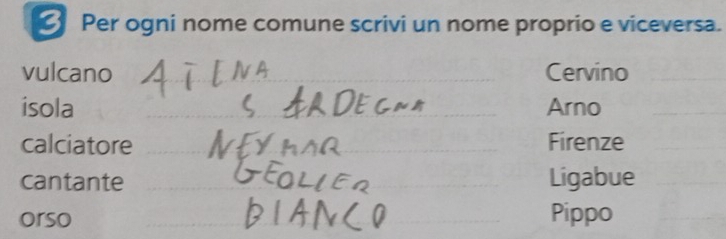 3 Per ogni nome comune scrivi un nome proprio e viceversa.
vulcano ATENA Cervino
isola SARDEGNA Arno
calciatore NEYMAR Firenze
cantante GEOLIER Ligabue
orso BIANCO Pippo